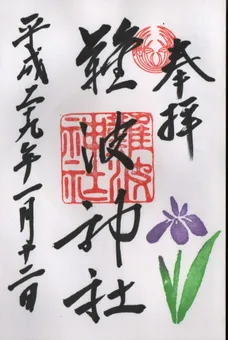 奉拝
難波神社
難波
神社
平成二九年一月十二日